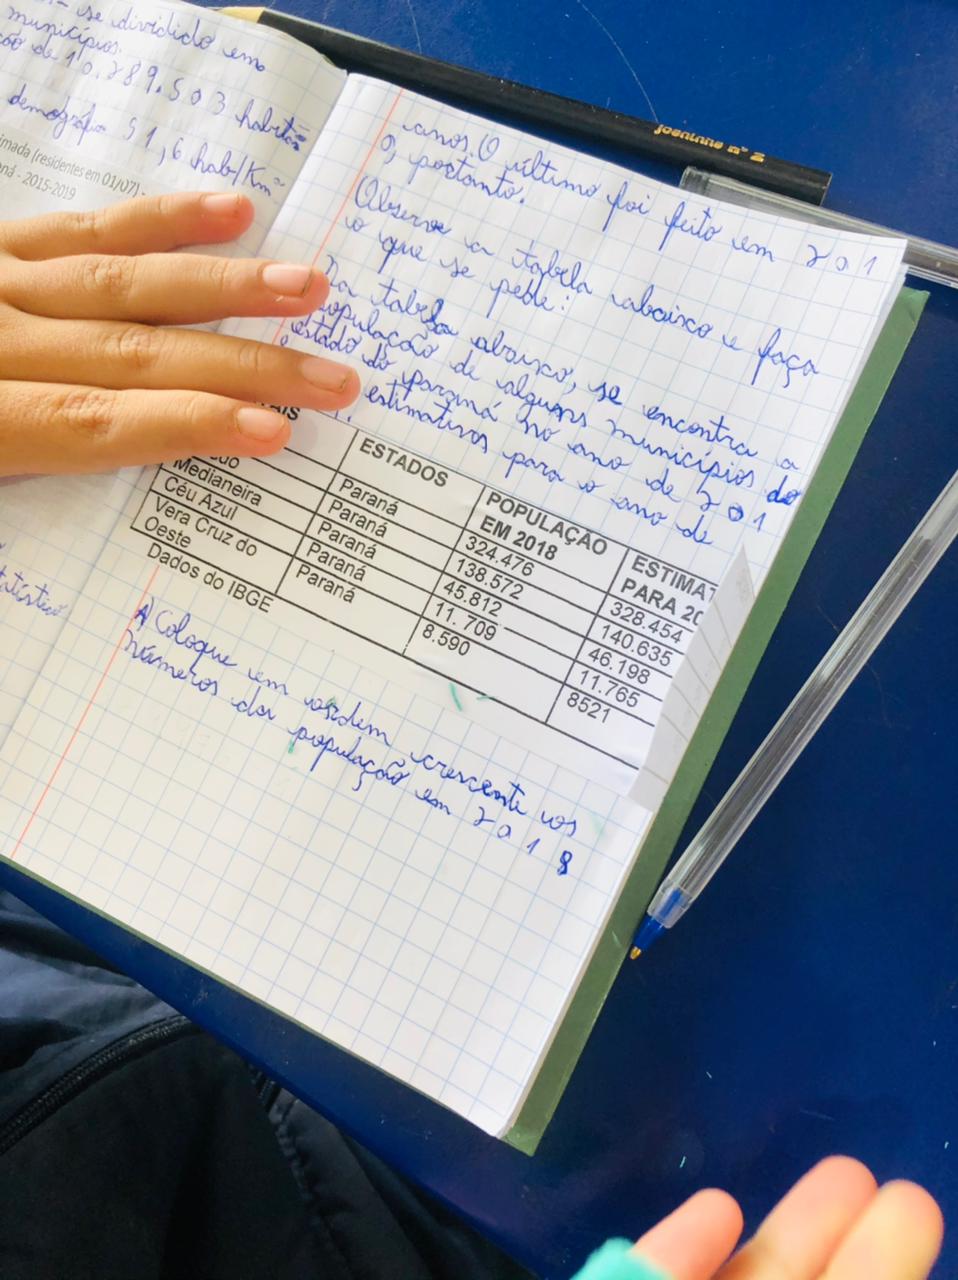 se dividido em
municípios.
ão de 10.289.503 habitan
demográfo 51,6 hab/Km²
imada (residentes em 01/07) -
ná - 2015-2019
tatístico
joaninha nº
anos. O último foi feito em 201
0, portanto.
Observe a tabela abaixo e faça
o que se pede:
Na tabela abaixo, se encontra a
população de alguns municípios do
estado do paraná no ano de 201
estimativas para o ano de
AIS ESTADOS POPULAÇÃO EM 2018 ESTIMAT PARA 20
Paraná 324.476 328.454
do Paraná 138.572 140.635
Medianeira Paraná 45.812 46.198
Céu Azul Paraná 11. 709 11.765
Vera Cruz do Oeste Paraná 8.590 8521
Dados do IBGE
A) Coloque em ordem crescente os
números da população em 2018